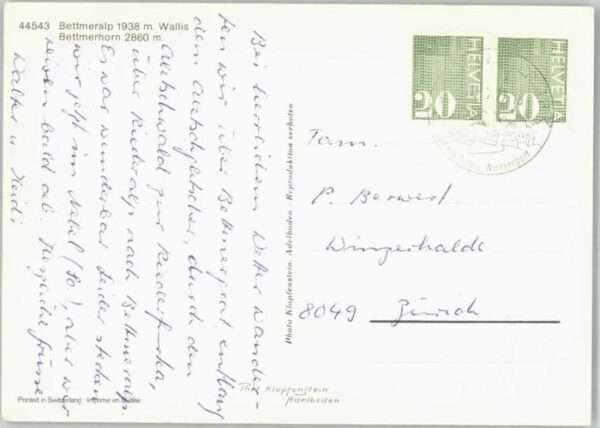 44543 Bettmeralp 1938 m. Wallis
Bettmerhorn 2860 m.
Bei herrlichem Wetter wander-
ten wir über Bettmergrat entlang
dem Aletschgletscher, durch den
Aletschwald zur Riederfurka,
über Riederalp nach Bettmeralp.
Es war wunderbar. Leider stecken
wir jetzt im Nebel (So.), aber wir
reisen bald ab. Herzliche Grüsse
Walter u. Heidi
Photo Klopfenstein, Adelboden - Reproduktion verboten
HELVETIA
20
HELVETIA
20
Fam.
P. Berwert
Wingerthalde
8049 Zürich
Phot. Klopfenstein
Adelboden
Printed in Switzerland · Imprimé en Suisse